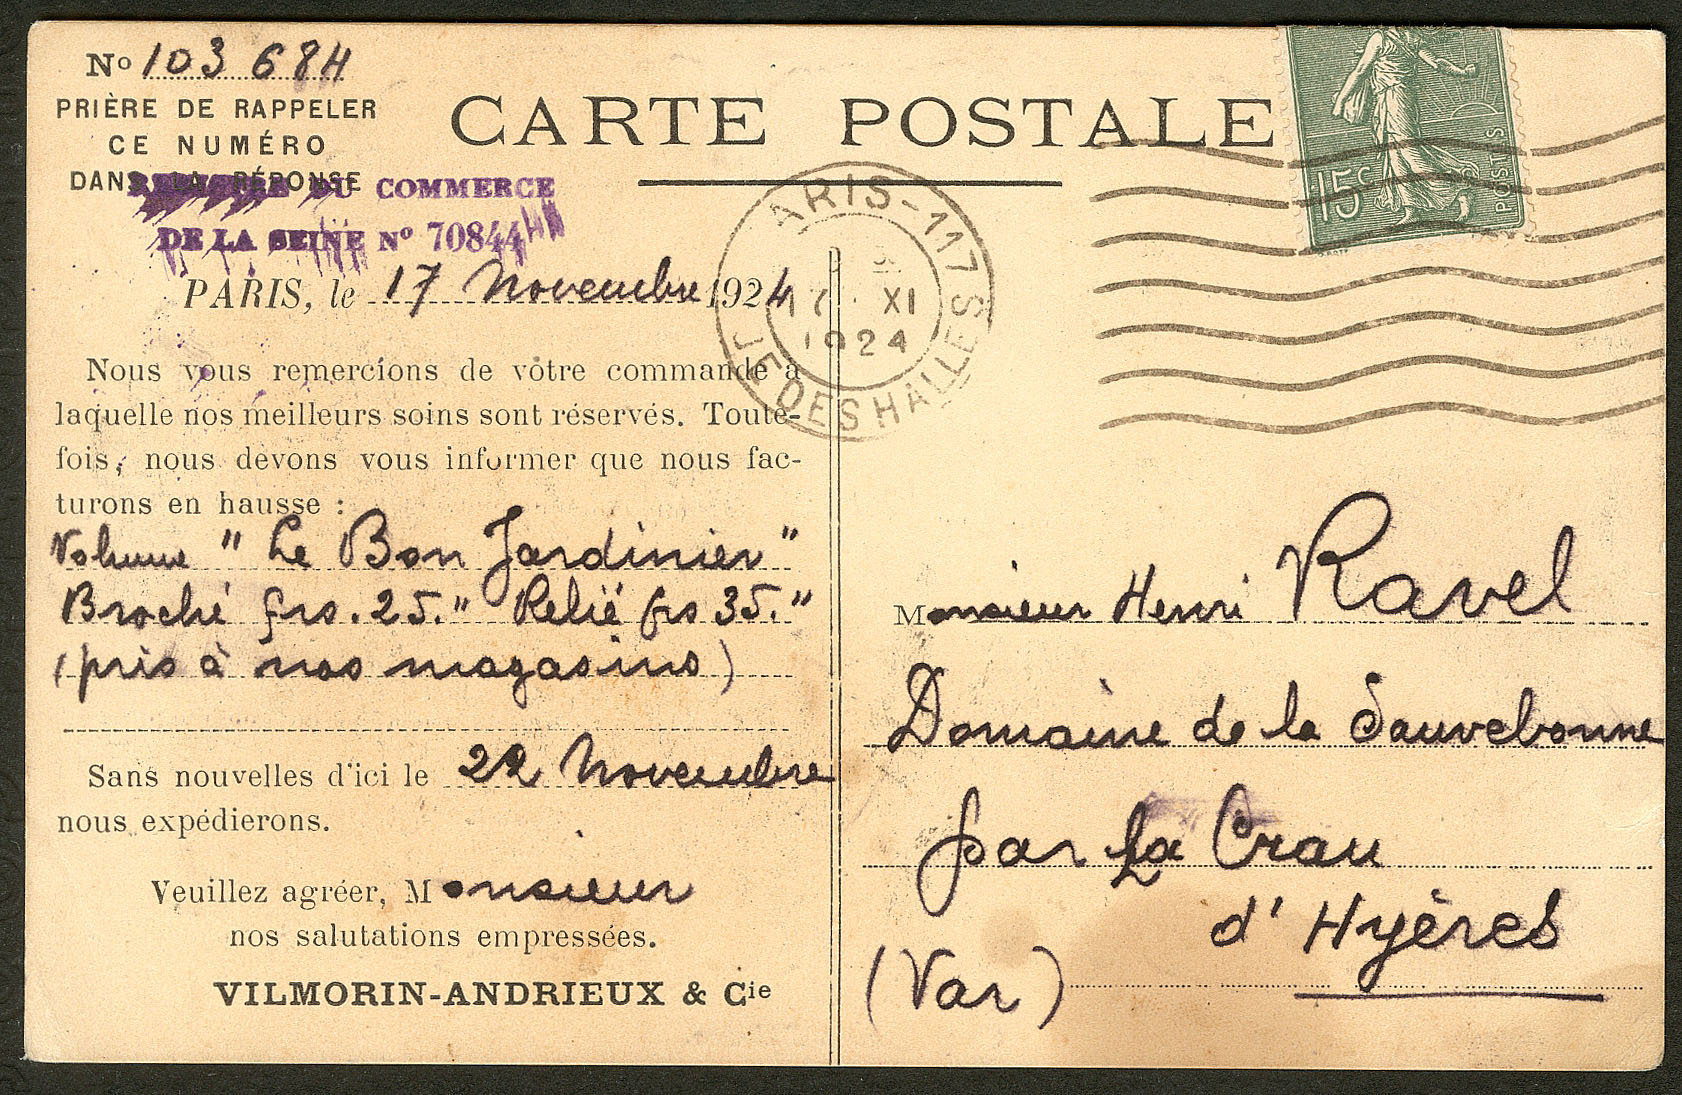 No 103 684
PRIÈRE DE RAPPELER
CE NUMÉRO
DANS LA RÉPONSE
REGISTRE DU COMMERCE
DE LA SEINE No 70844
CARTE POSTALE
15c
POSTES
PARIS-117
17 XI
1924
DES HALLES
PARIS, le 17 Novembre 1924
Nous vous remercions de vôtre commande à
laquelle nos meilleurs soins sont réservés. Toute-
fois, nous devons vous informer que nous fac-
turons en hausse :
Volume " Le Bon Jardinier "
Broché frs. 25." Relié frs 35."
(pris à nos magasins)
Sans nouvelles d'ici le 22 Novembre
nous expédierons.
Veuillez agréer, Monsieur
nos salutations empressées.
VILMORIN-ANDRIEUX & Cie
Monsieur Henri Ravel
Domaine de la Sauvebonne
par La Crau
d' Hyères
(Var)